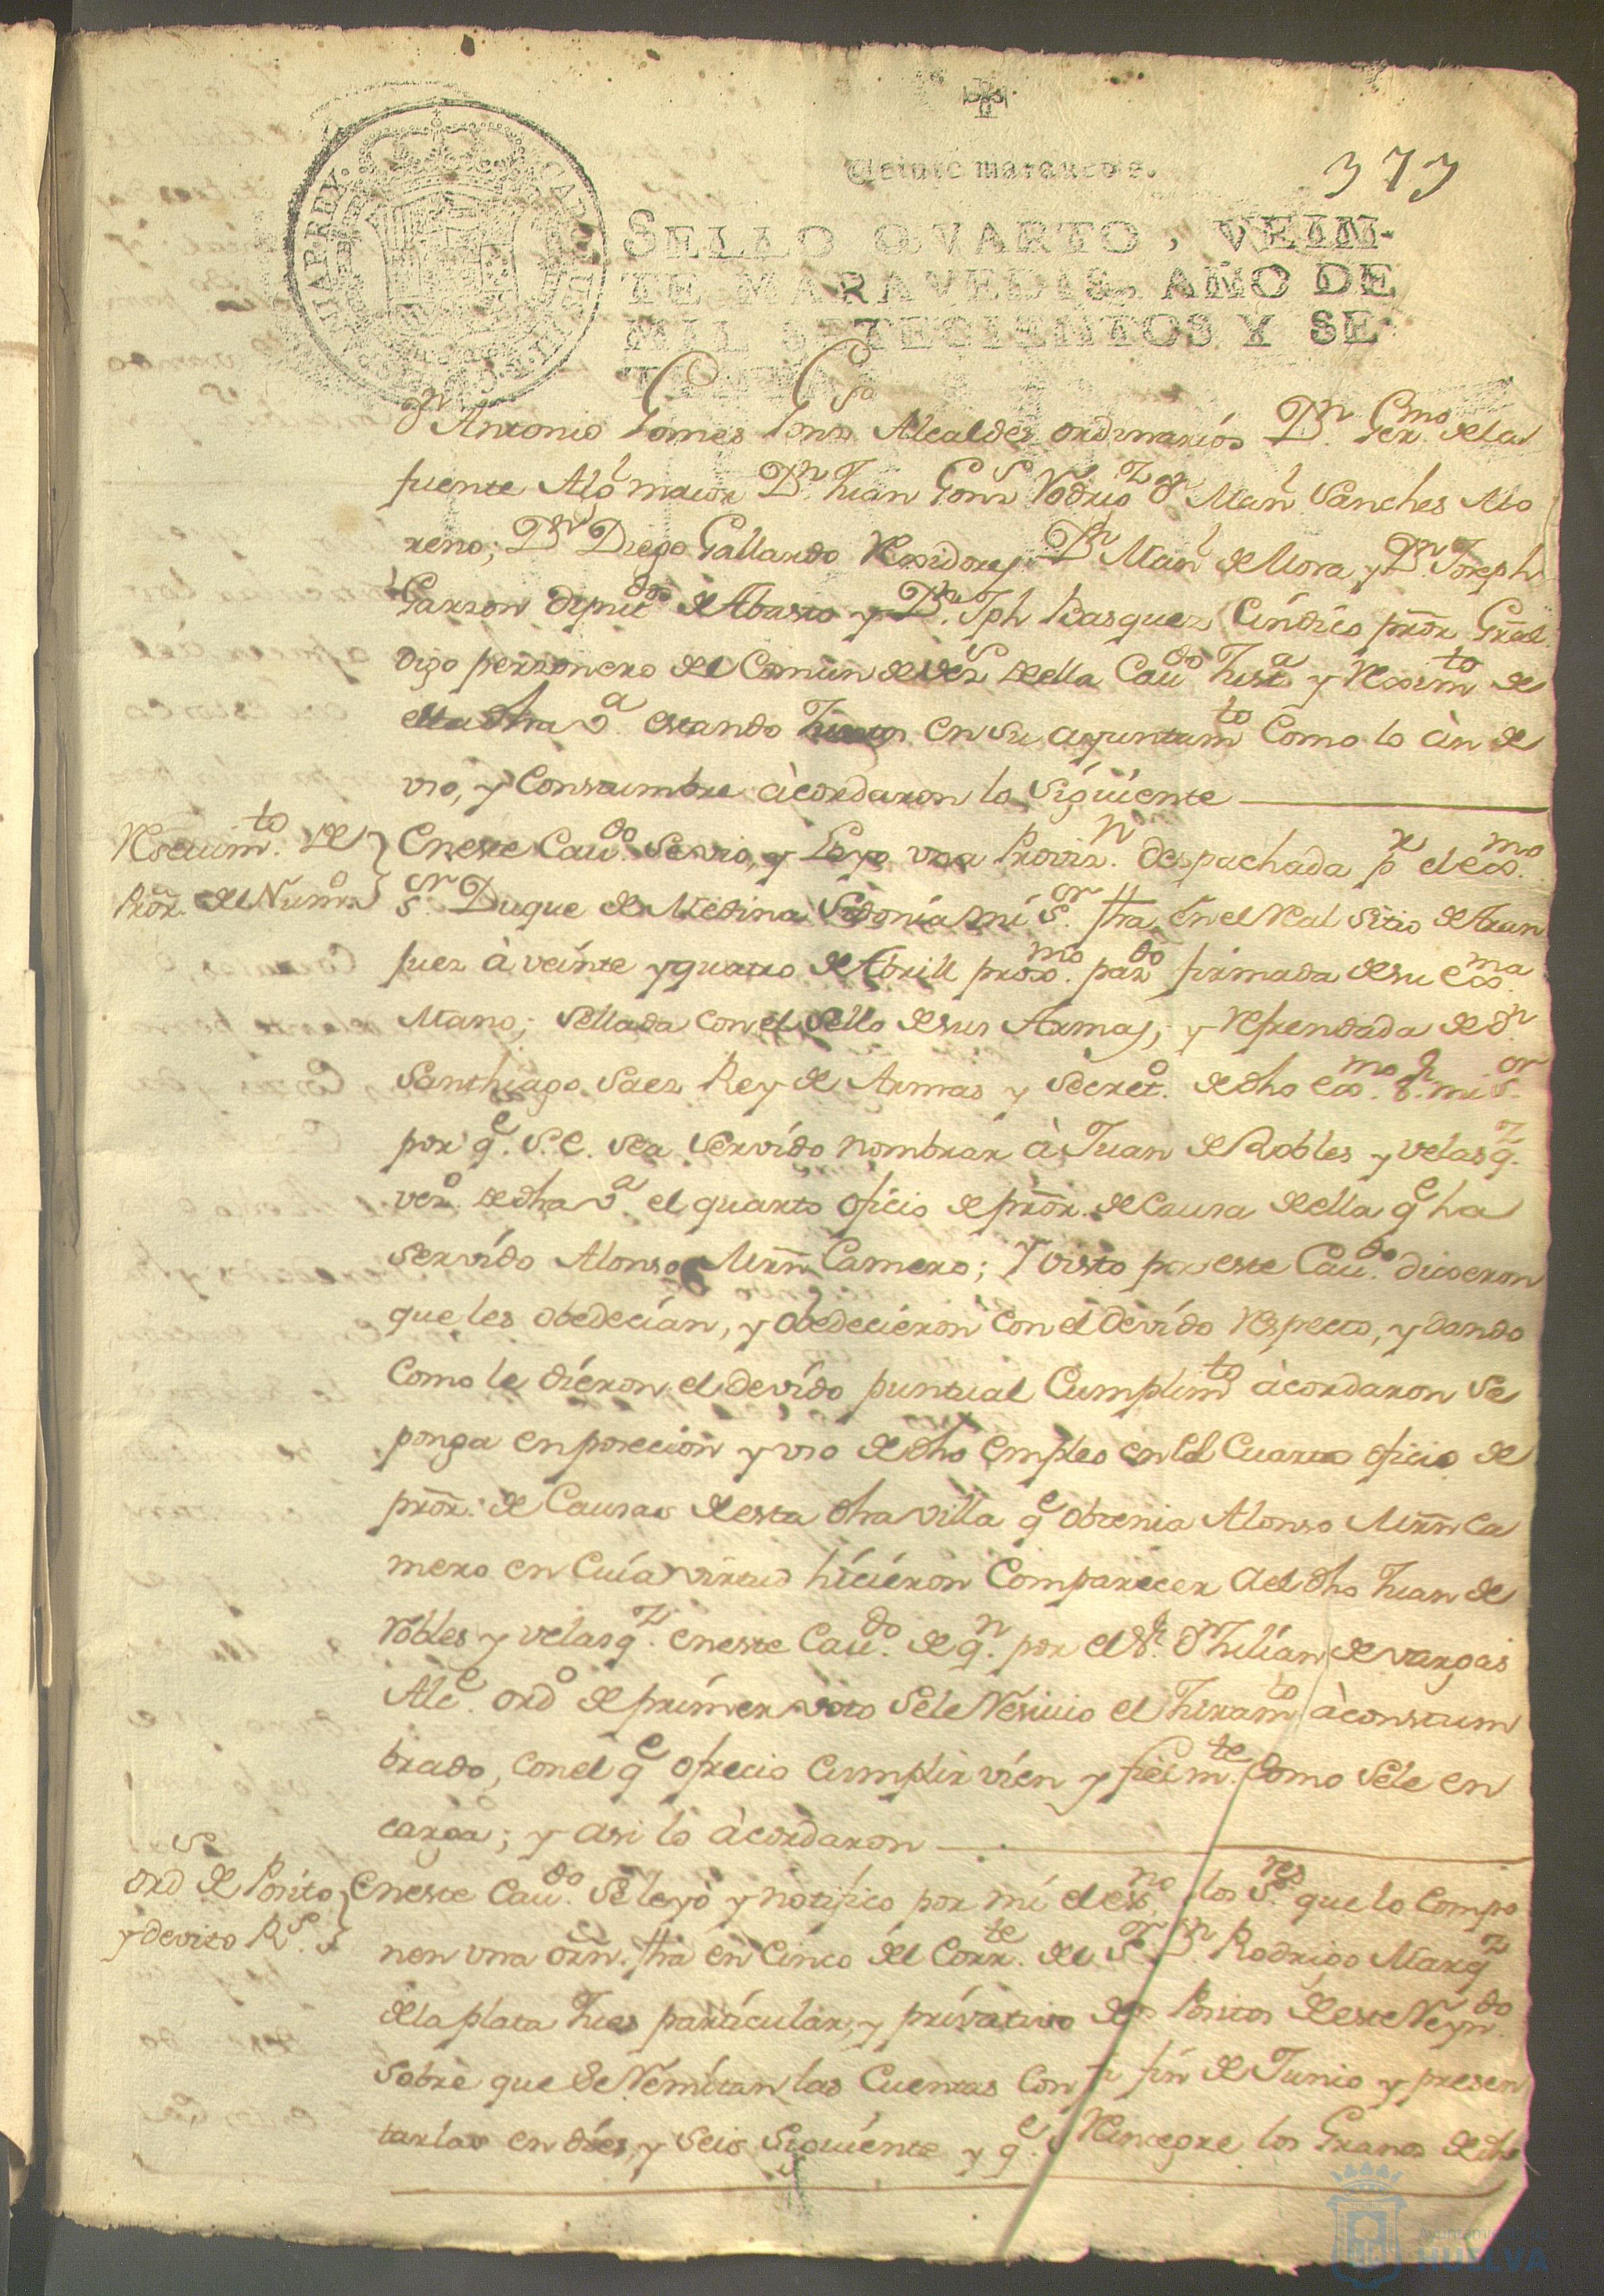 Veinte maravedis.
373
SELLO QVARTO, VEIN-
TE MARAVEDIS, AÑO DE
MIL SETECIENTOS Y SE-
CAROLUS III D G HISPANIAR REX
Dn Antonio Gomes Alcaldes ordinarios Dn Germo de la
fuente Algl maior Dn Juan Gons Dn Manl Sanches Mo
reno; Dn Diego Gallardo Rexidores Dn Manl de Mora y Dn Joseph
Garzon diputdos de Abasto y Dn Jph Basquez Cíndico prõr Grãl
digo perzonero del Comun de vezs de ella Caudo Justa y Reximto de
esta dha va estando Juntos en su ayuntamto Como lo àn de
vso, y Constumbre àcordaron lo Sigüiente
Reseuimto de
Prõr. de Numo
En este Caudo. Se vio, y Leyo vna Provizn. despachada pr el exmo.
Sr. Duque de Medina Sidonía mi Sor. fha en el Real Sitio de Aran
juez à veinte y quatro de Abrill proxmo. pazdo firmada de su exma
Mano; Sellada con el Sello de sus Armas; y Refrendada de Dn
Santhiago Saez Rey de Armas y Secreto. de dho exmo. Sr. mi Sor.
por qe. S. E. sea Servído nombrar à Juan de Robles y velasqz.
vezo. de dha va. el quarto oficio de prõr. de Causa de ella qe ha
Servído Alonso Mrñ Camero; Y visto por este Caudo. dixeron
que les obedecían, y obedecieron con el devído Respecto, y dando
Como le díeron el devído puntual Cumplimto àcordaron Se
ponga en posecion y vso de dho empleo en el Cuarto oficio de
prõr. de Causas de esta dha villa qe obtenia Alonso Mrñ Ca
mero en Cuía virtud hicieron Comparecer a el dho Juan de
Robles y velasqz. en este Caudo. de qn. por el Sr. Dn Julían de vargas
Alce. ordo de primer voto Se le Resiuio el Juramto àconstum
brado, con el qe ofrecio cumplir vien y fielmte. Como Sele en
carga; y asi lo àcordaron
Ords de Posito
y devito Rs.
En este Caudo. Se leyò y notifico por mí el esno. los Sres. que lo compo
nen vna orñ. fha en Cinco del Corrte. del Sor Dn. Rodrigo Marqz
de la plata Jues particular, y privativo de Positos de este Reyndo.
Sobre que se Remitan las Cuentas Con fin de Junio y presen
tarlas en dies, y seis Siguiente y qe. Reintegre los Granos de dho
Ayuntamiento de
HUELVA